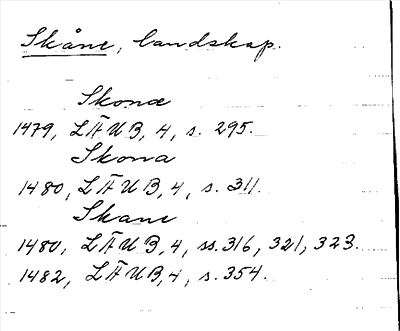 Skåne, landskap.
Skonæ
1479, LÄUB, 4, s. 295.
Skona
1480, LÄUB, 4, s. 311.
Skane
1480, LÄUB, 4, ss. 316, 321, 323.
1482, LÄUB, 4, s. 354.